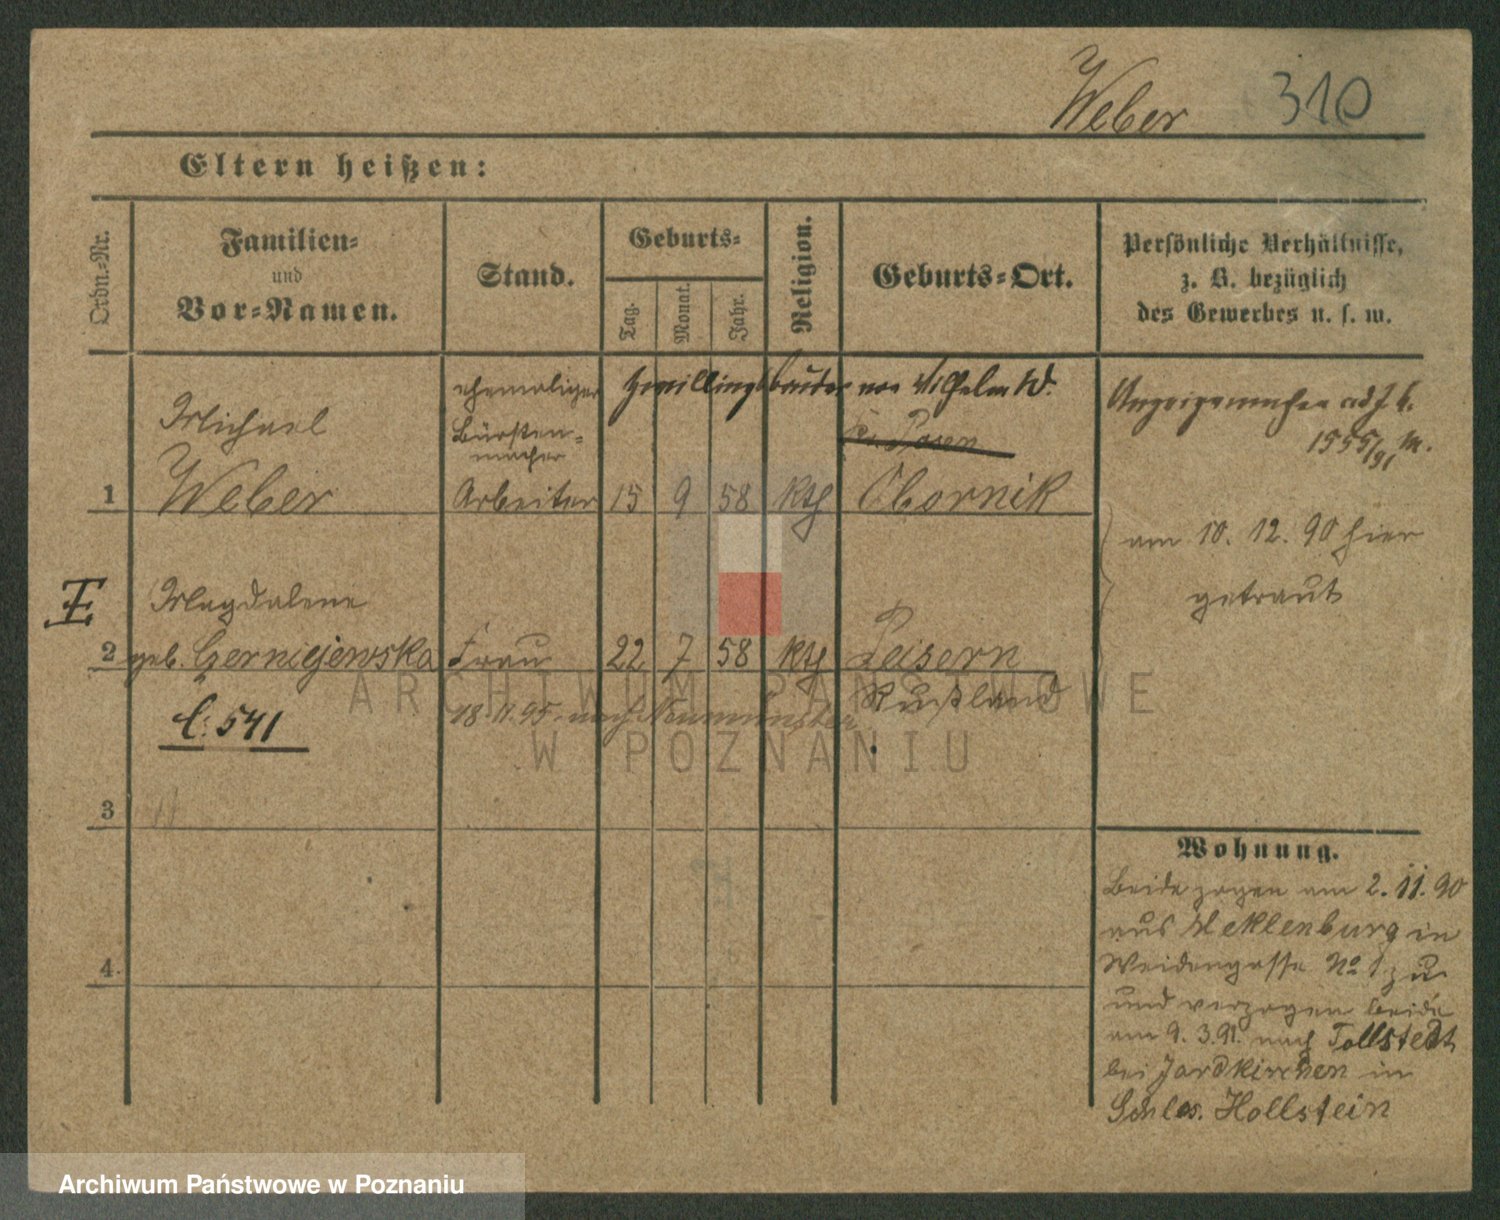 Weber 310
Eltern heißen:
Ordn.-Nr.
Familien-
und
Vor-Namen.
Stand.
Geburts-
Tag.
Monat.
Jahr.
Religion.
Geburts-Ort.
Persönliche Verhältnisse,
z. B. bezüglich
des Gewerbes u. s. w.
ehemaliger Zwillingsbruder von Wilhelm W.
Michael Bürsten-
macher
1 Weber Arbeiter 15 9 58 kth Obornik
1555/91
am 10. 12. 90 hier
getraut
Magdalene
2 geb. Frau 22 7 58 kth Peisern
Rußland
18.11.95 nach Neumünster
C. 541
3
4.
Wohnung.
Beide zogen am 2. 11. 90
aus Meklenburg in
Weidengasse No 1 zu
und verzogen beide
am 9. 3. 91. nach Tollstedt
bei Jardkirchen in
Schles. Hollstein
ARCHIWUM PAŃSTWOWE
W POZNANIU
Archiwum Państwowe w Poznaniu